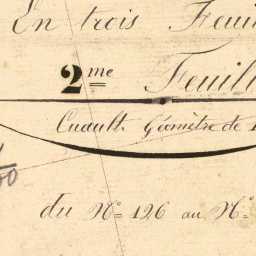 En trois Feuil
2me Feuill
Cuault Géomètre de 1
00
du N° 126 au N°